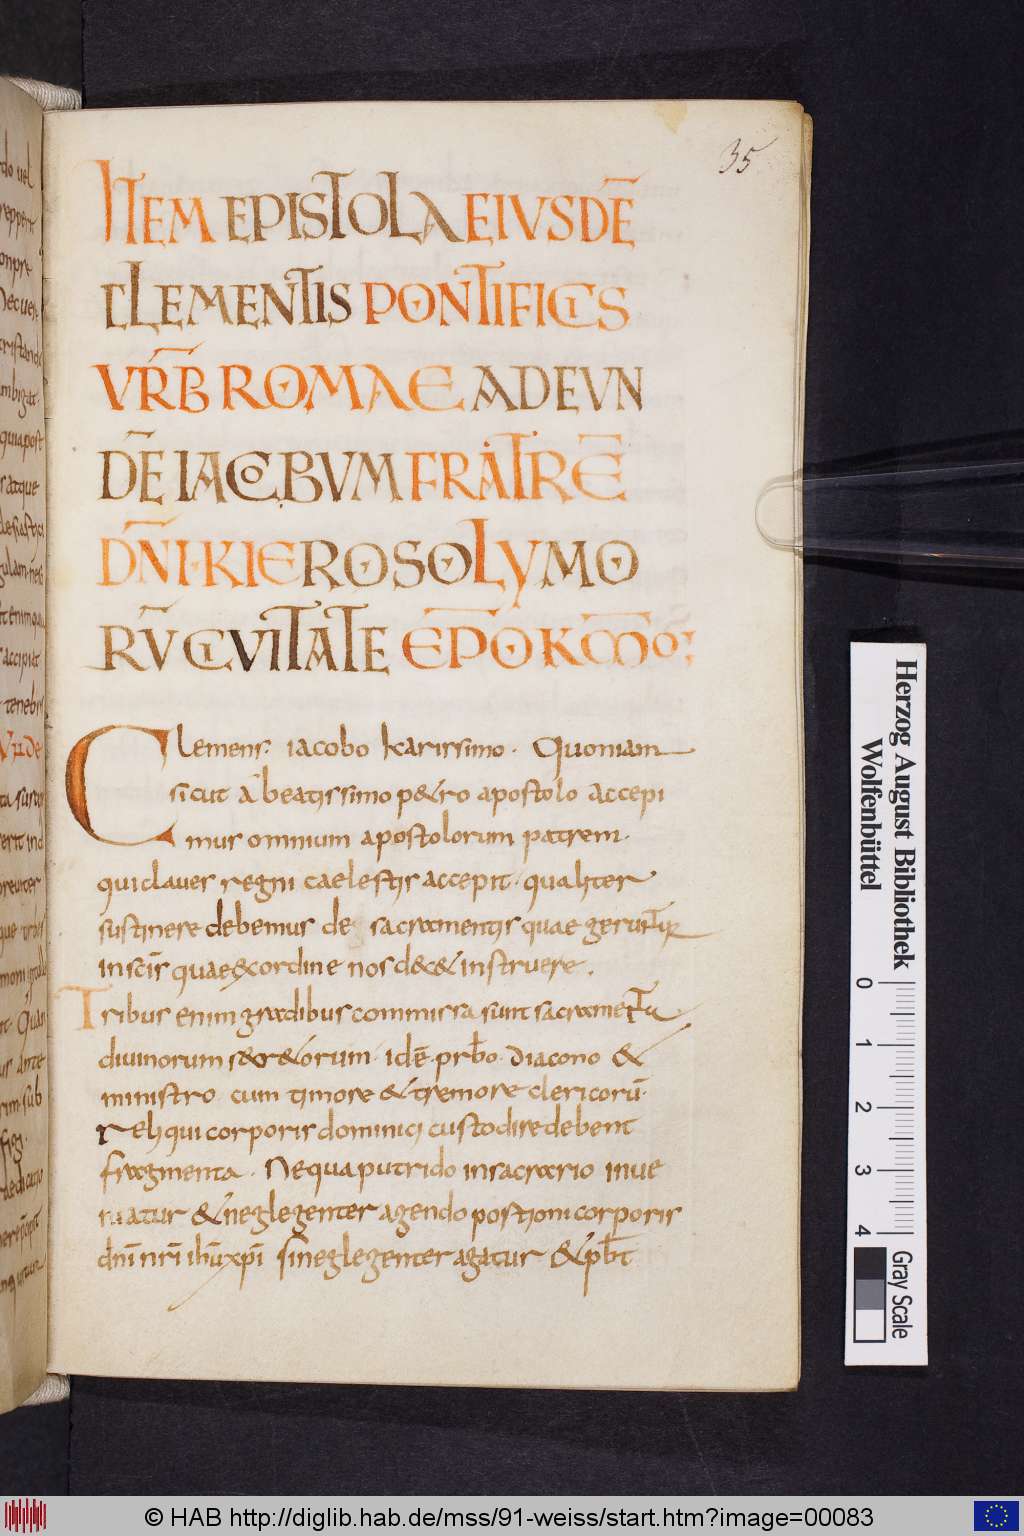 35
ITEM EPISTOLA EIUSDĒ
CLEMENTIS PONTIFICIS
VRB̄ ROMAE AD EVN
DĒ IACOBVM FRATRĒ
DN̄I · KIEROSOLYMO
RV̄ CIVITATE EP̄O K̄MO;
Clemens · iacobo karissimo · Quoniam
sicut a beatissimo p&ro apostolo accepi
mus omnium apostolorum patrem ·
qui claues regni caelestis accepit · qualiter
sustinere debemus de sacramentis quae geruntur
in sc̄is quae ex ordine nos dec& instruere .
Tribus enim gradibus commissa sunt sacramenta
diuinorum secr&orum · idē · prb̄o · diacono &
ministro · cum timore & tremore clericorū ·
reliqui corporis dominici custodire debent
fragmenta · Ne qua putrido in sacrario inue
niatur & neglegenter agendo postioni corporis
dn̄i nr̄i ih̄u xp̄i si neglegenter agatur & pb̄t
Herzog August Bibliothek
Wolfenbüttel
0 1 2 3 4
Gray Scale
© HAB http://diglib.hab.de/mss/91-weiss/start.htm?image=00083